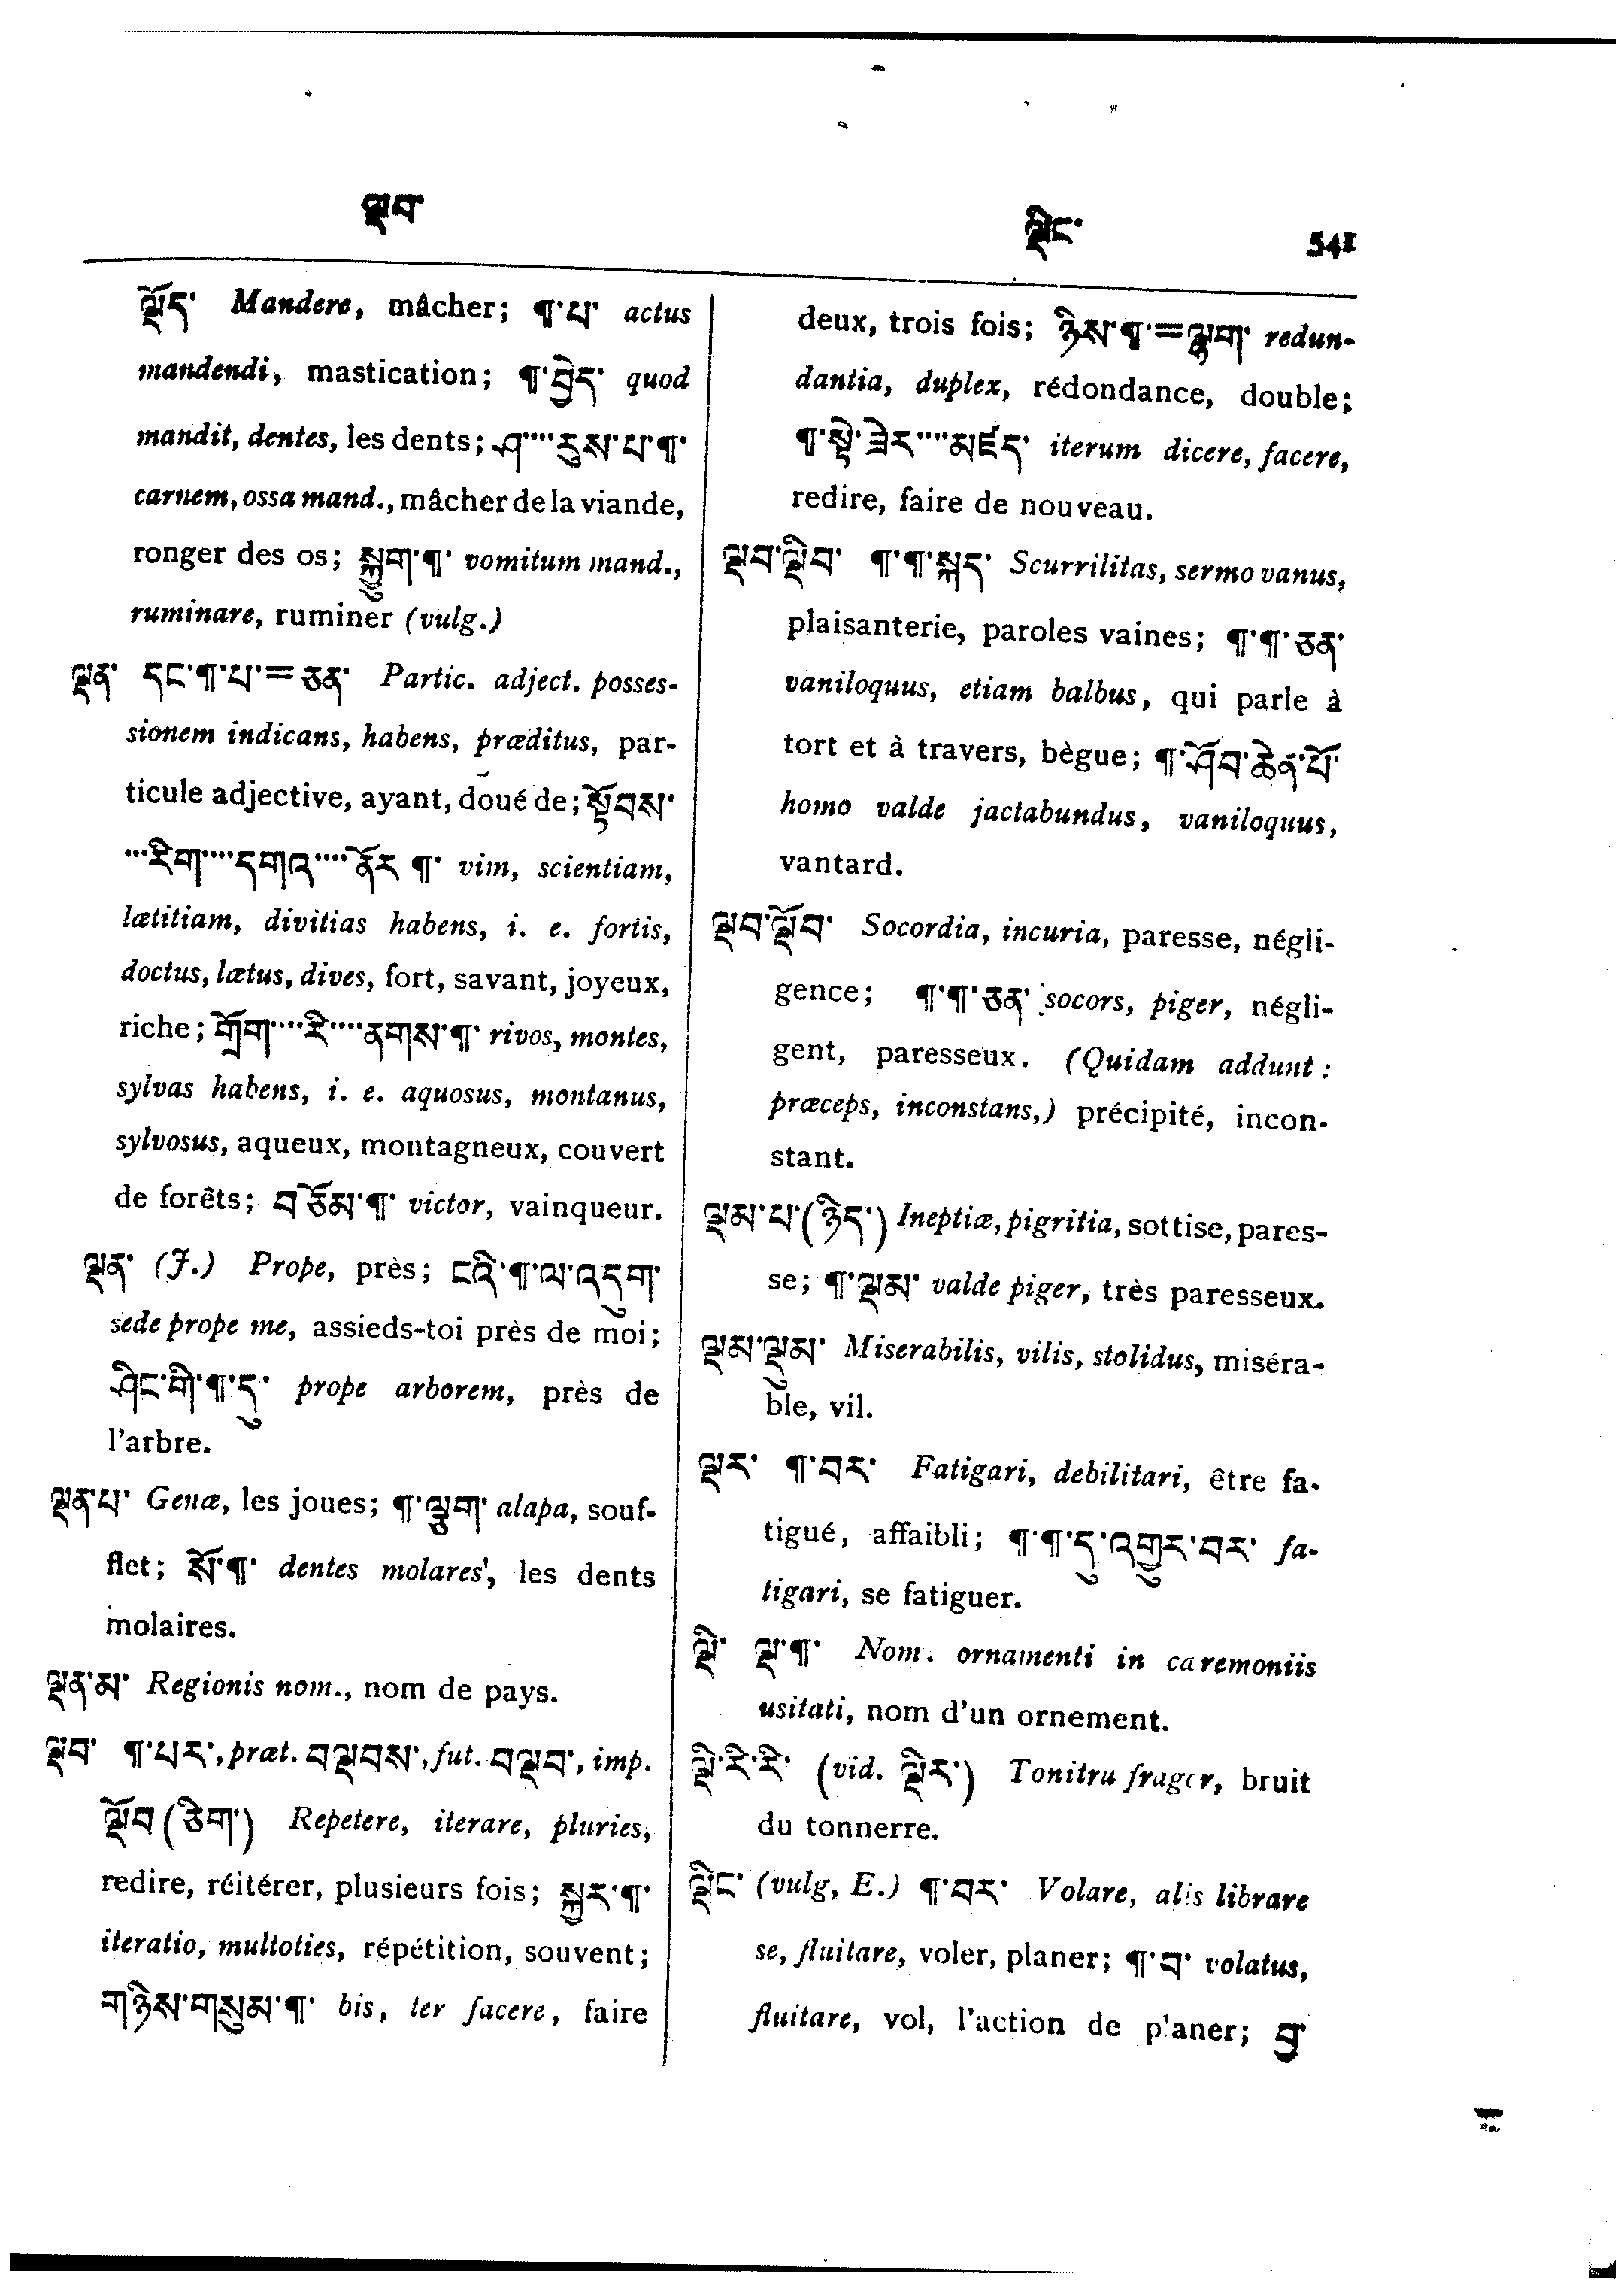 ལྡབ་
ལྡིང་ 541
ལྡོད་ Mandere, mâcher; ¶་པ་ actus
mandendi, mastication; ¶་བྱེད་ quod
mandit, dentes, les dents; ཤ····རུས་པ་¶་
carnem, ossa mand., mâcher de la viande,
ronger des os; སྐྱུག་¶་ vomitum mand.,
ruminare, ruminer (vulg.)
ལྡན་ དང་¶་པ་=ཅན་ Partic. adject. posses-
sionem indicans, habens, præditus, par-
ticule adjective, ayant, doué de; སྟོབས་
···རིག····དགའ····ནོར ¶་ vim, scientiam,
lætitiam, divitias habens, i. e. fortis,
doctus, lætus, dives, fort, savant, joyeux,
riche; གྲོག····རི····ནགས་¶་ rivos, montes,
sylvas habens, i. e. aquosus, montanus,
sylvosus, aqueux, montagneux, couvert
de forêts; བཅོམ་¶་ victor, vainqueur.
ལྡན་ (J.) Prope, près; ངའི་¶་ལ་འདུག་
sede prope me, assieds-toi près de moi;
ཤིང་གི་¶་དུ་ prope arborem, près de
l'arbre.
ལྡན་པ་ Genæ, les joues; ¶་ལྕག་ alapa, souf-
flet; སོ་¶་ dentes molares, les dents
molaires.
ལྡན་མ་ Regionis nom., nom de pays.
ལྡབ་ ¶་པར་, præt. བལྡབས་, fut. བལྡབ་, imp.
ལྡོབ (ཅིག་) Repetere, iterare, pluries,
redire, réitérer, plusieurs fois; སྐྱར་¶་
iteratio, multoties, répétition, souvent;
གཉིས་གསུམ་¶་ bis, ter facere, faire
deux, trois fois; ཉིས་¶་=ལྷག་ redun-
dantia, duplex, rédondance, double;
¶་སྟེ་ཟེར····མཛད་ iterum dicere, facere,
redire, faire de nouveau.
ལྡབ་ལྡིབ་ ¶་¶་སྐད་ Scurrilitas, sermo vanus,
plaisanterie, paroles vaines; ¶་¶་ཅན་
vaniloquus, etiam balbus, qui parle à
tort et à travers, bègue; ¶་ཤོབ་ཆེན་པོ་
homo valde jactabundus, vaniloquus,
vantard.
ལྡབ་ལྡོབ་ Socordia, incuria, paresse, négli-
gence; ¶་¶་ཅན་ socors, piger, négli-
gent, paresseux. (Quidam addunt :
præceps, inconstans,) précipité, incon-
stant.
ལྡམ་པ་(ཉིད་) Ineptiæ, pigritia, sottise, pares-
se; ¶་ལྡམ་ valde piger, très paresseux.
ལྡམ་ལྡུམ་ Miserabilis, vilis, stolidus, miséra-
ble, vil.
ལྡར་ ¶་བར་ Fatigari, debilitari, être fa-
tigué, affaibli; ¶་¶་དུ་འགྱུར་བར་ fa-
tigari, se fatiguer.
ལྡི་ ལྡ་¶་ Nom. ornamenti in caremoniis
usitati, nom d'un ornement.
ལྡི་རི་རི་ (vid. ལྡིར་) Tonitru fragor, bruit
du tonnerre.
ལྡིང་ (vulg, E.) ¶་བར་ Volare, alis librare
se, fluitare, voler, planer; ¶་བ་ volatus,
fluitare, vol, l'action de planer; བྱ་